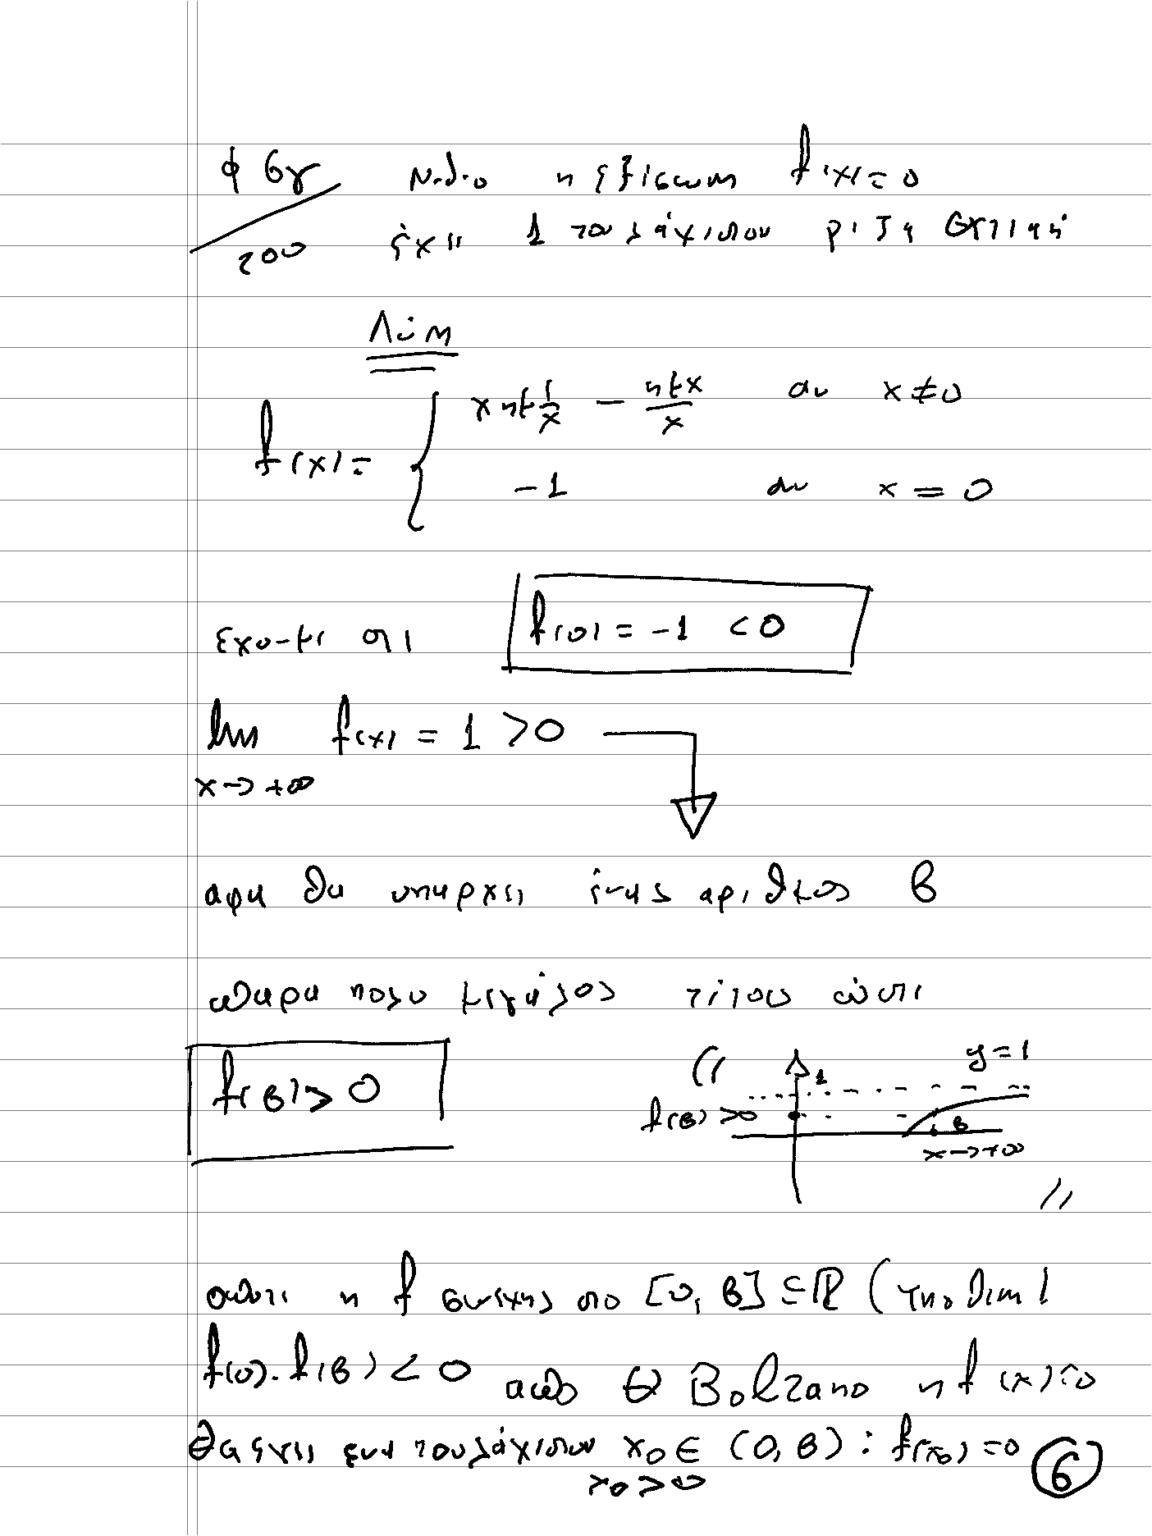 φ 6γ Ν.δ.ο η εξίσωση f(x)=0
200 έχει 1 τουλάχιστον ρίζα θετική
Λύση
f(x)= { x ημ 1/x − ημx/x αν x≠0
-1 αν x = 0
έχουμε οτι f(0) = -1 <0
lim f(x) = 1 >0
x→+∞
αρα θα υπαρχει ένας αριθμος β
παρα πολυ μεγάλος τέτοιος ώστε
f(β)>0
(( 1 y=1
f(β)>0 β
x→+∞
))
οποτε η f συνεχης στο [0, β] ⊆ℝ (υποθεση)
f(0).f(β) < 0 απο Θ Bolzano η f(x)=0
θα έχει ενα τουλάχιστον x₀∈ (0,β) : f(x₀)=0
x₀>0
6